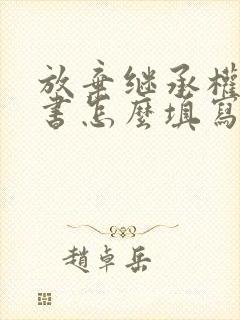 放弃继承權
書怎麼填寫
趙卓岳